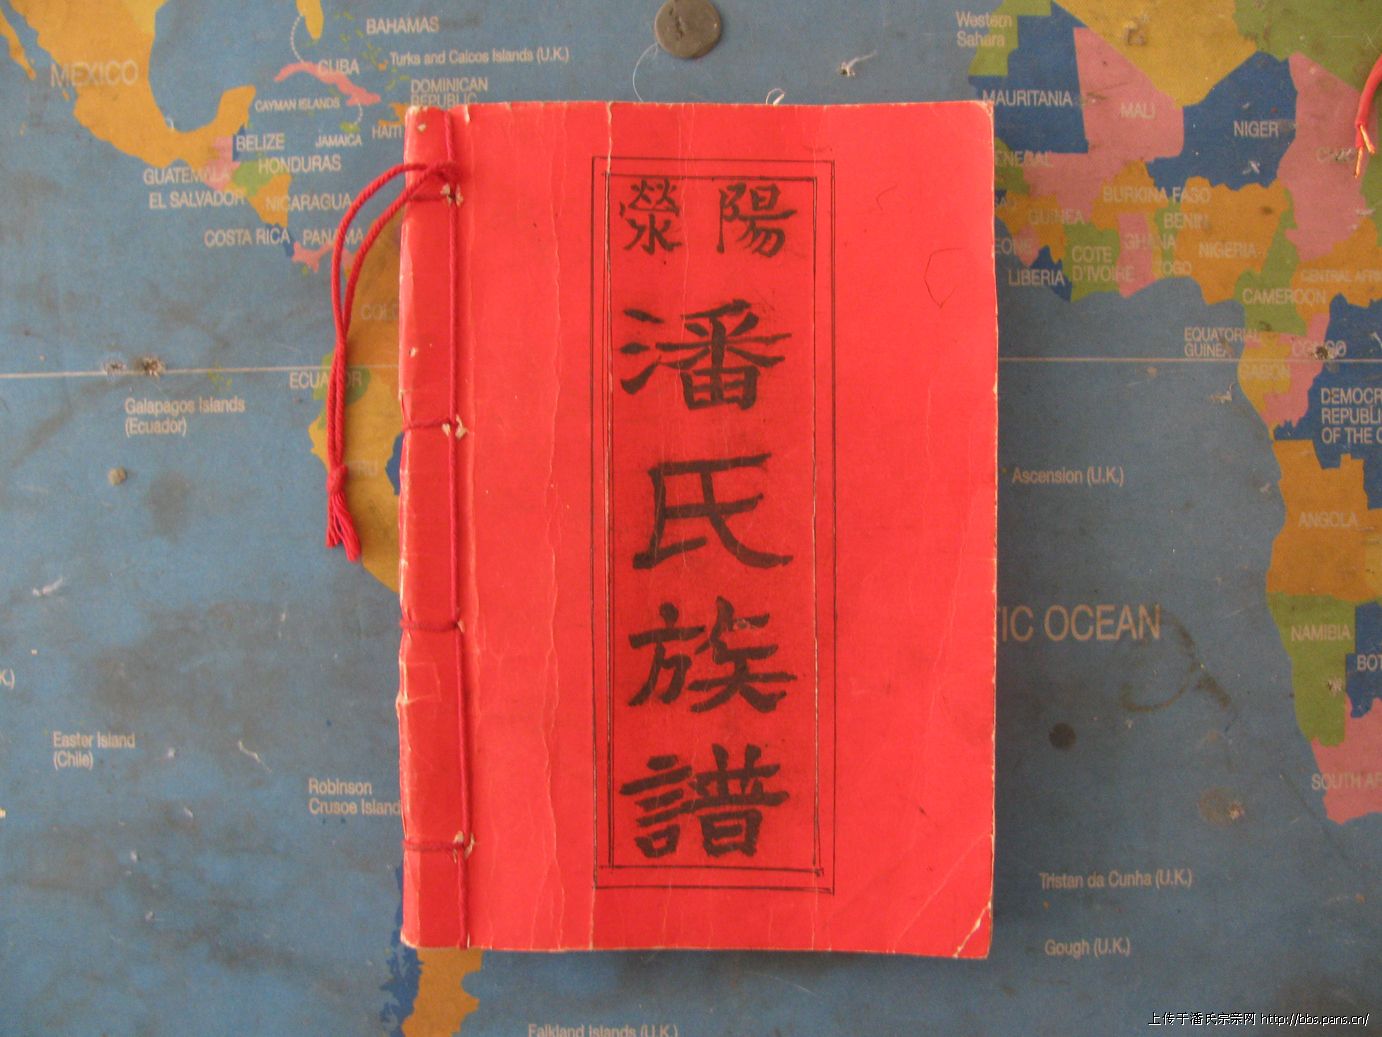 滎陽
潘
氏
族
譜
BAHAMAS
MEXICO
Turks and Caicos Islands (U.K.)
CUBA
CAYMAN ISLANDS
DOMINICAN
REPUBLIC
BELIZE
JAMAICA
HAITI
HONDURAS
GUATEMALA
EL SALVADOR
NICARAGUA
COSTA RICA
PANAMA
ECUADOR
Galapagos Islands
(Ecuador)
Easter Island
(Chile)
Robinson
Crusoe Island
Falkland Islands (U.K.)
Western
Sahara
MAURITANIA
MALI
NIGER
BURKINA FASO
GUINEA
BENIN
GHANA
COTE
D'IVOIRE
TOGO
NIGERIA
LIBERIA
CENTRAL AFRI
CAMEROON
EQUATORIAL
GUINEA
CONGO
GABON
DEMOCR
REPUBLI
OF THE C
Ascension (U.K.)
ANGOLA
TIC OCEAN
NAMIBIA
BOT
SOUTH AF
Tristan da Cunha (U.K.)
Gough (U.K.)
上传于潘氏宗亲网 http://bbs.pans.cn/